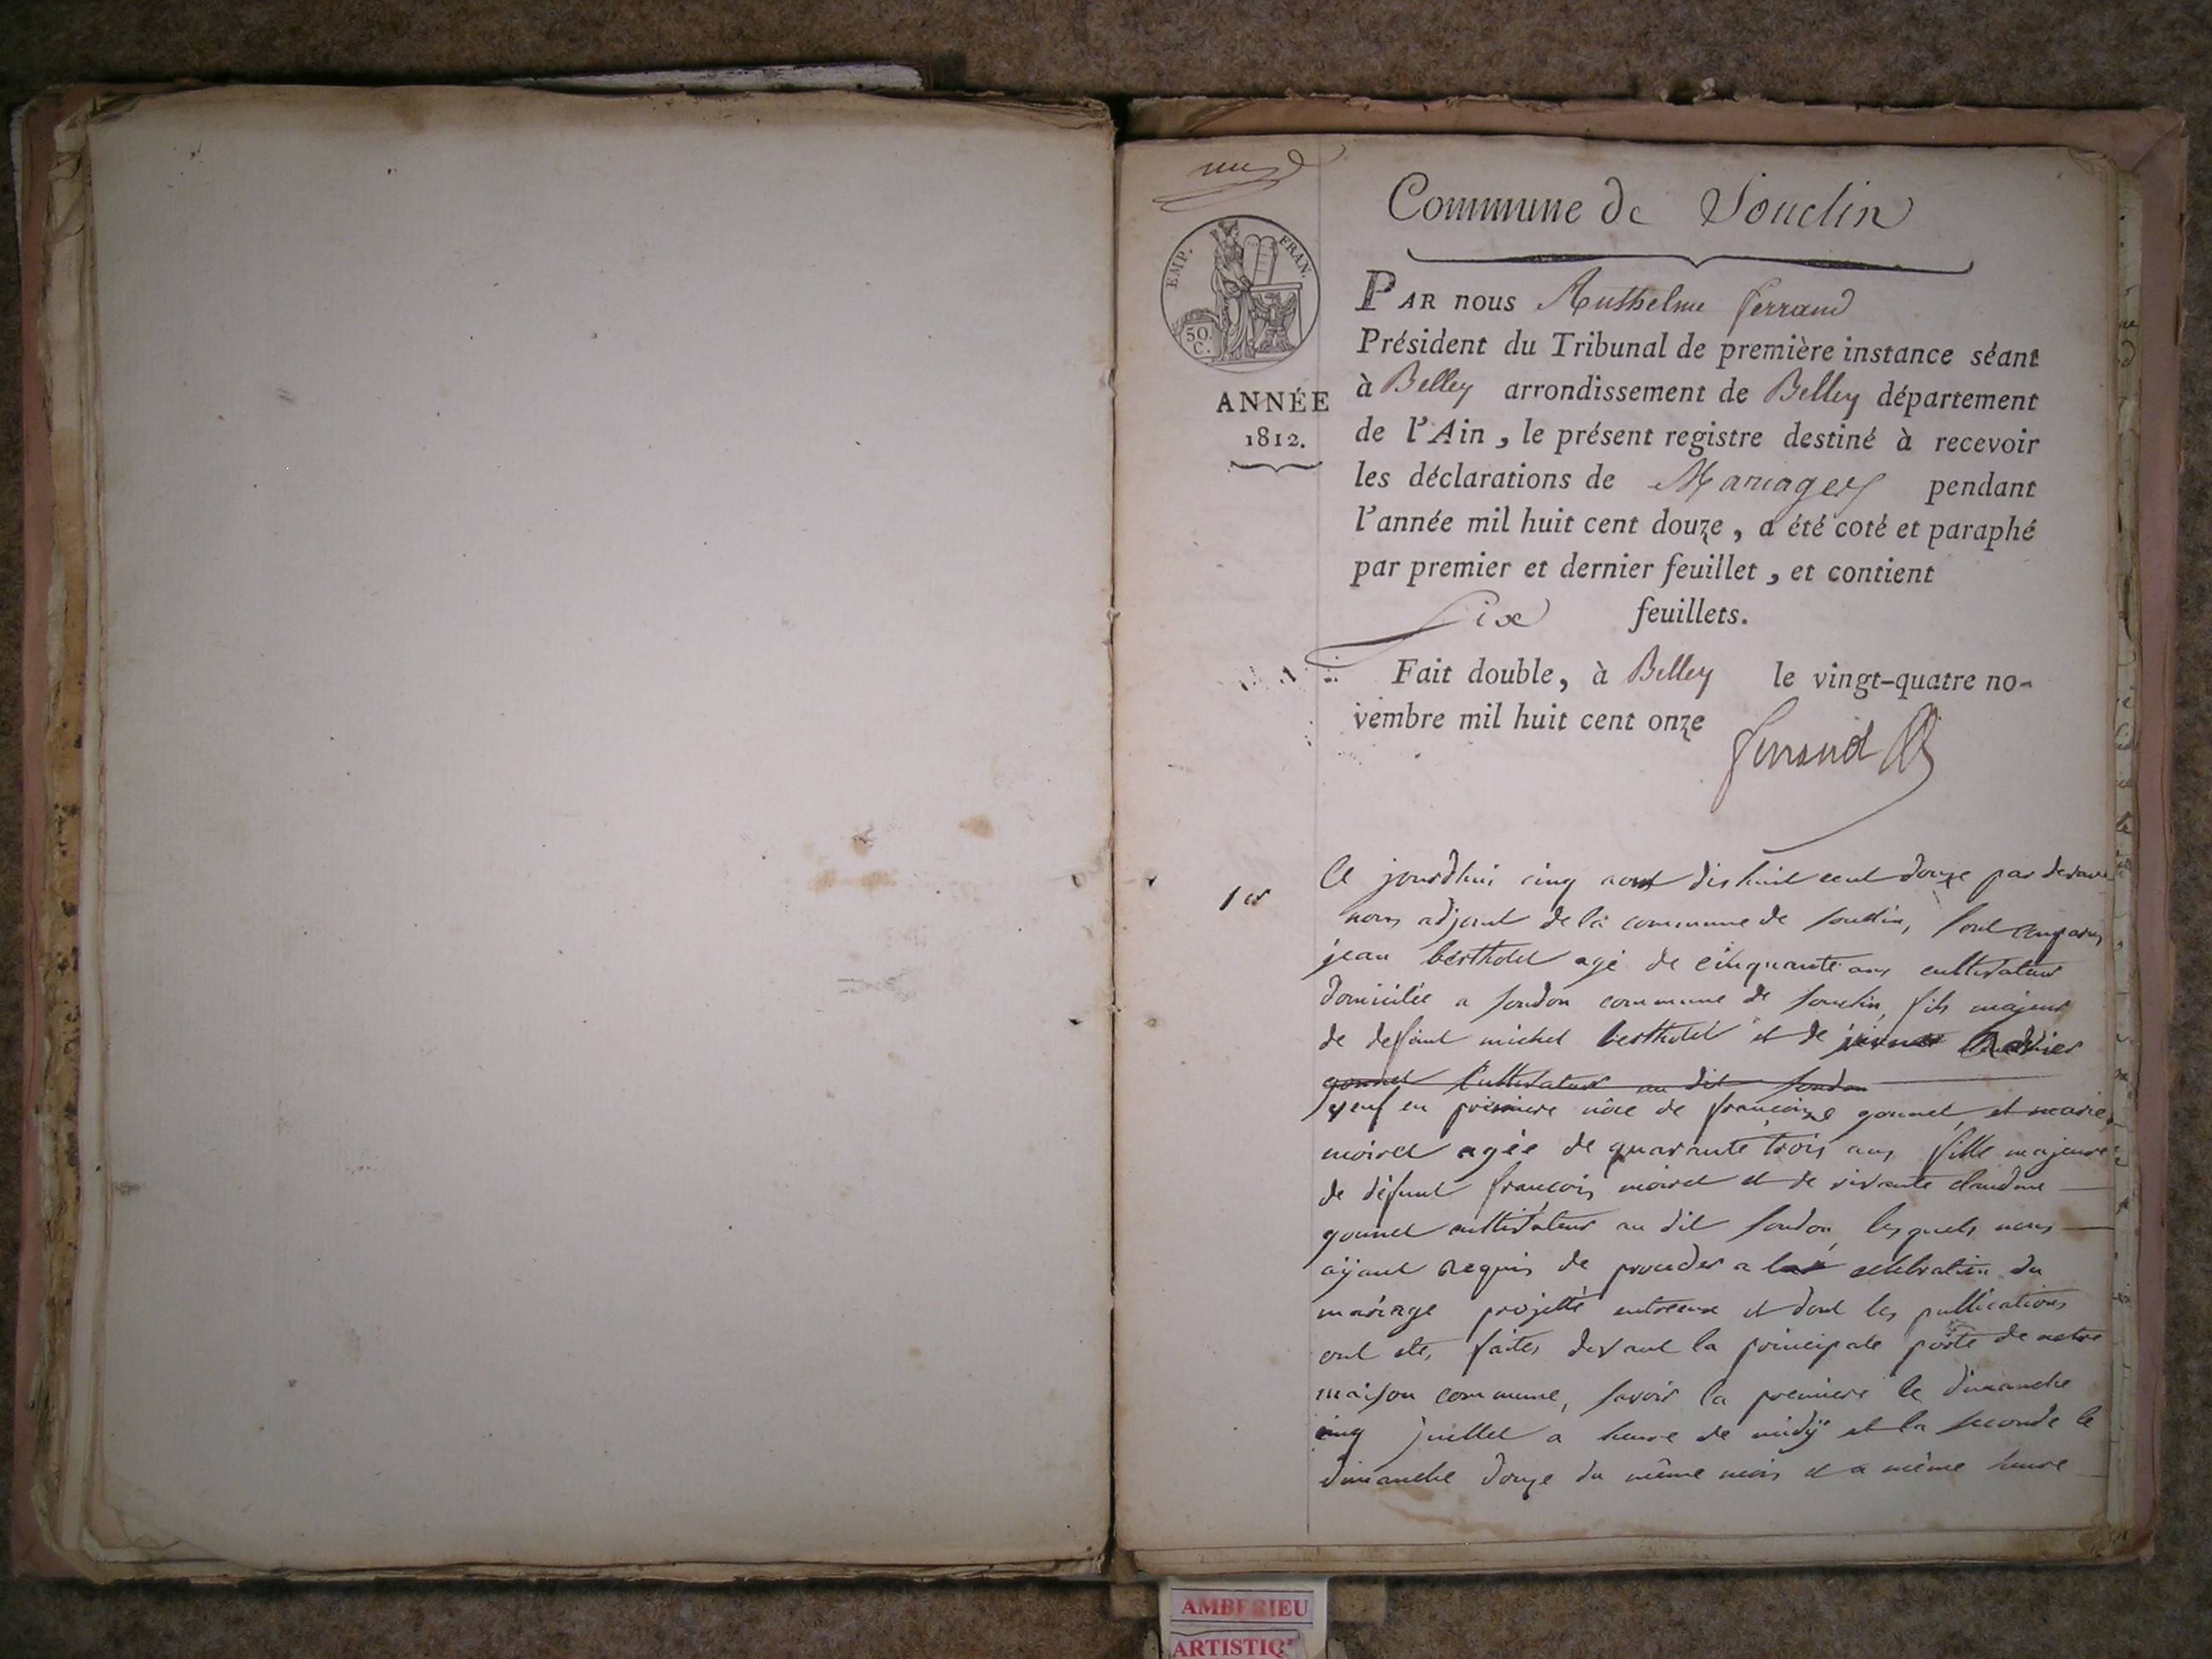 Commune de Souclin
EMP. FRAN.
50 C.
ANNÉE
1812.
PAR nous Anthelme ferrand
Président du Tribunal de première instance séant
à Belley arrondissement de Belley département
de l'Ain, le présent registre destiné à recevoir
les déclarations de Mariages pendant
l'année mil huit cent douze, a été coté et paraphé
par premier et dernier feuillet, et contient
Six feuillets.
Fait double, à Belley le vingt-quatre no-
vembre mil huit cent onze
ferrand
1er
Ce jourdhui cinq aout dix huit cent douze par devant
nous adjoint de la commune de souclin, sont comparus
jean bertholet agé de cinquante ans cultivateur
domicilié a soudon commune de souclin, fils majeur
de deffunt michel berthelet et de
gonnet Cultivateur au dit soudon
veuf en premiere nôce de françoize gonnet, et marie
moiret agée de quarante trois ans fille majeure
de défunt françois moiret et de vivante claudine
gonnet cultivateur au dit soudon, lesquels nous
aÿant requis de proceder a la celebration du
mariage projetté entreeux et dont les publications
ont etes faites devant la principale porte de notre
maison commune, savoir la premiere le dimanche
cinq juillet a heure de midÿ et la seconde le
dimanche douze du même mois et a même heure
AMBERIEU
ARTISTIQ